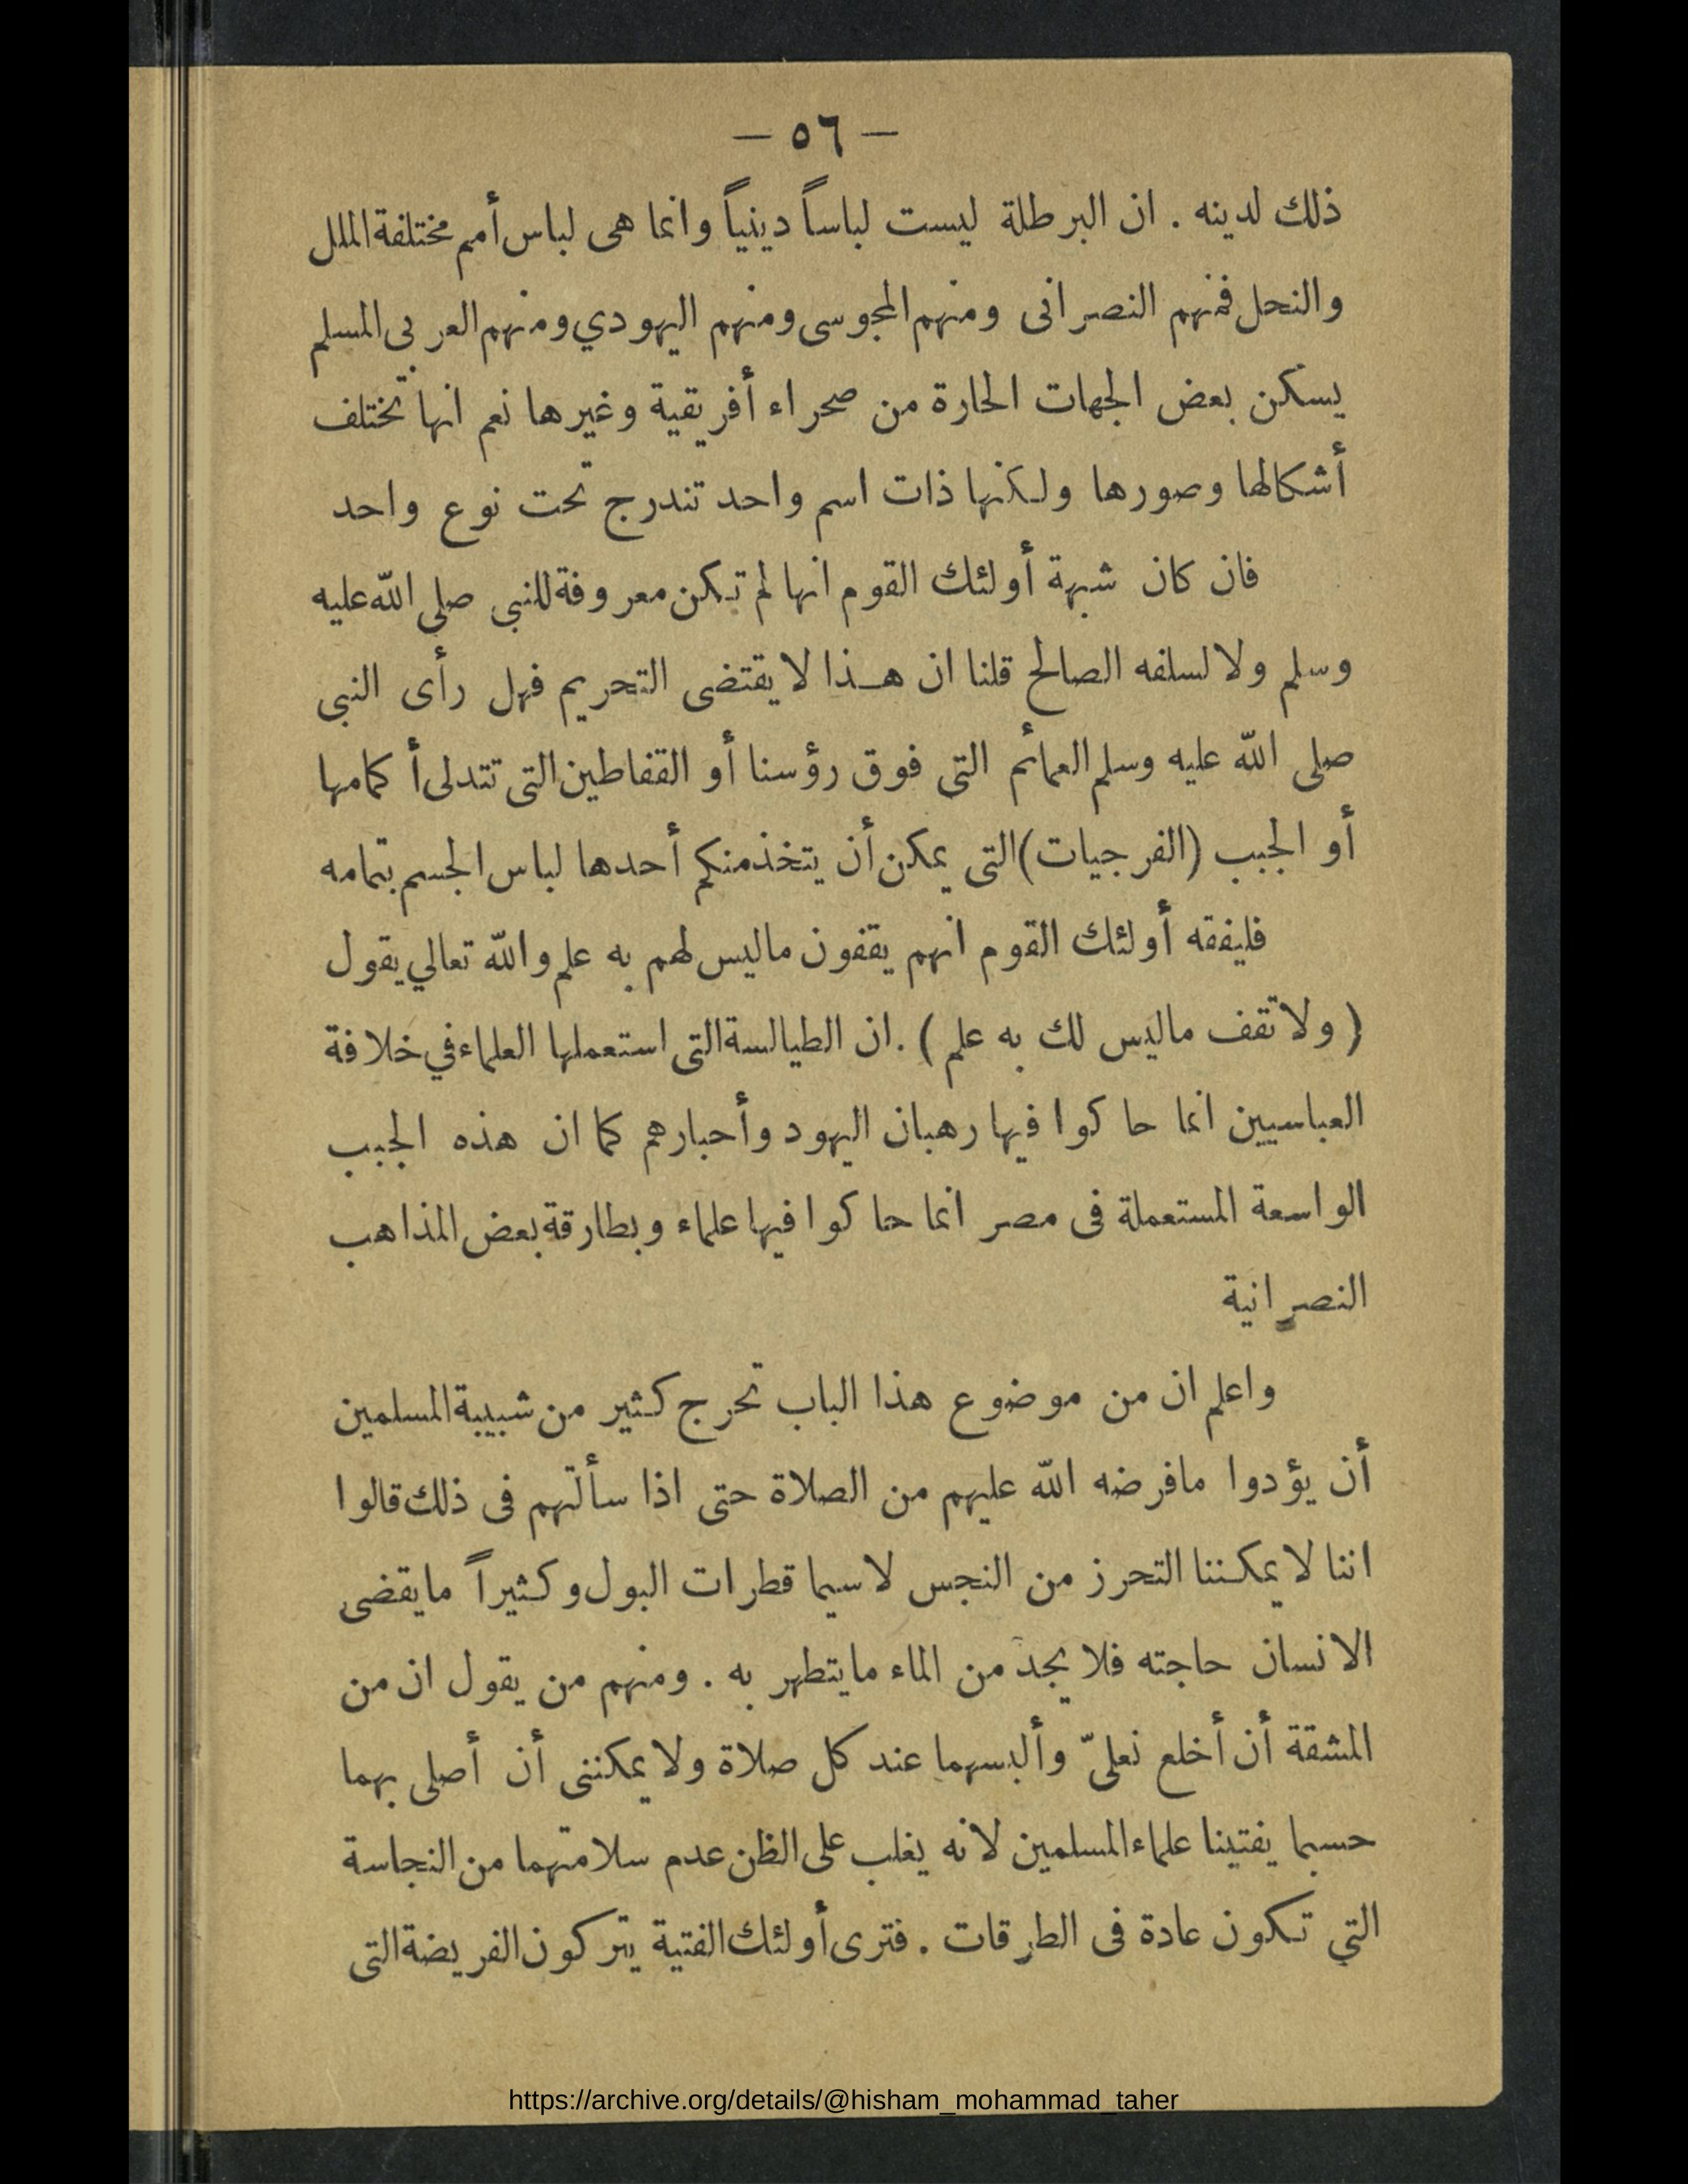 — ٥٦ —
ذلك لدينه . ان البرطلة ليست لباساً دينياً وانما هى لباس أمم مختلفة الملل
والنحل فمنهم النصرانى ومنهم المجوسى ومنهم اليهودي ومنهم العربى المسلم
يسكن بعض الجهات الحارة من صحراء أفريقية وغيرها نعم انها تختلف
أشكالها وصورها ولكنها ذات اسم واحد تندرج تحت نوع واحد
فان كان شبهة أولئك القوم انها لم تكن معروفة للنبى صلى الله عليه
وسلم ولا لسلفه الصالح قلنا ان هذا لا يقتضى التحريم فهل رأى النبى
صلى الله عليه وسلم العمائم التى فوق رؤسنا أو القفاطين التى تتدلى أكمامها
أو الجبب (الفرجيات) التى يمكن أن يتخذ منكم أحدها لباس الجسم بتمامه
فليفقه أولئك القوم انهم يقفون ماليس لهم به علم والله تعالي يقول
( ولا تقف ماليس لك به علم ) . ان الطيالسة التى استعملها العلماء في خلافة
العباسيين انما حاكوا فيها رهبان اليهود وأحبارهم كما ان هذه الجبب
الواسعة المستعملة فى مصر انما حاكوا فيها علماء وبطارقة بعض المذاهب
النصرانية
واعلم ان من موضوع هذا الباب تحرج كثير من شبيبة المسلمين
أن يؤدوا مافرضه الله عليهم من الصلاة حتى اذا سألتهم فى ذلك قالوا
اننا لا يمكننا التحرز من النجس لاسيما قطرات البول وكثيراً مايقضى
الانسان حاجته فلا يجد من الماء مايتطهر به . ومنهم من يقول ان من
المشقة أن أخلع نعلىّ وألبسهما عند كل صلاة ولا يمكننى أن أصلى بهما
حسبما يفتينا علماء المسلمين لانه يغلب على الظن عدم سلامتهما من النجاسة
التي تكون عادة فى الطرقات . فترى أولئك الفتية يتركون الفريضة التى
https://archive.org/details/@hisham_mohammad_taher